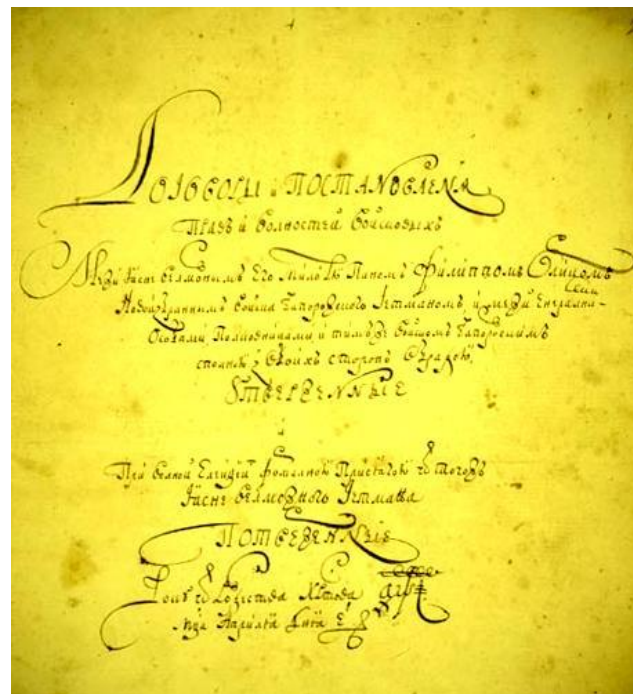 Договоры и Постановленя
Правъ и волностей Войсковыхъ
Межи Ясне велможнымъ Его Милстю Паномъ Филиппомъ Орликомъ
Новоизбраннымъ Войска Запорозкого Гетманомъ, и межи Енералными
Особами, Полковниками и тимъ же Войскомъ Запорозкимъ
сполною з обоихъ сторонъ обрадою,
Утверженные
и
При волной Елекцїи формалною Присягою ѿ тогожъ
Ясне велможного Гетмана
Потверженные
Року ѿ Рожества Христова
Мца Априля дня е҃